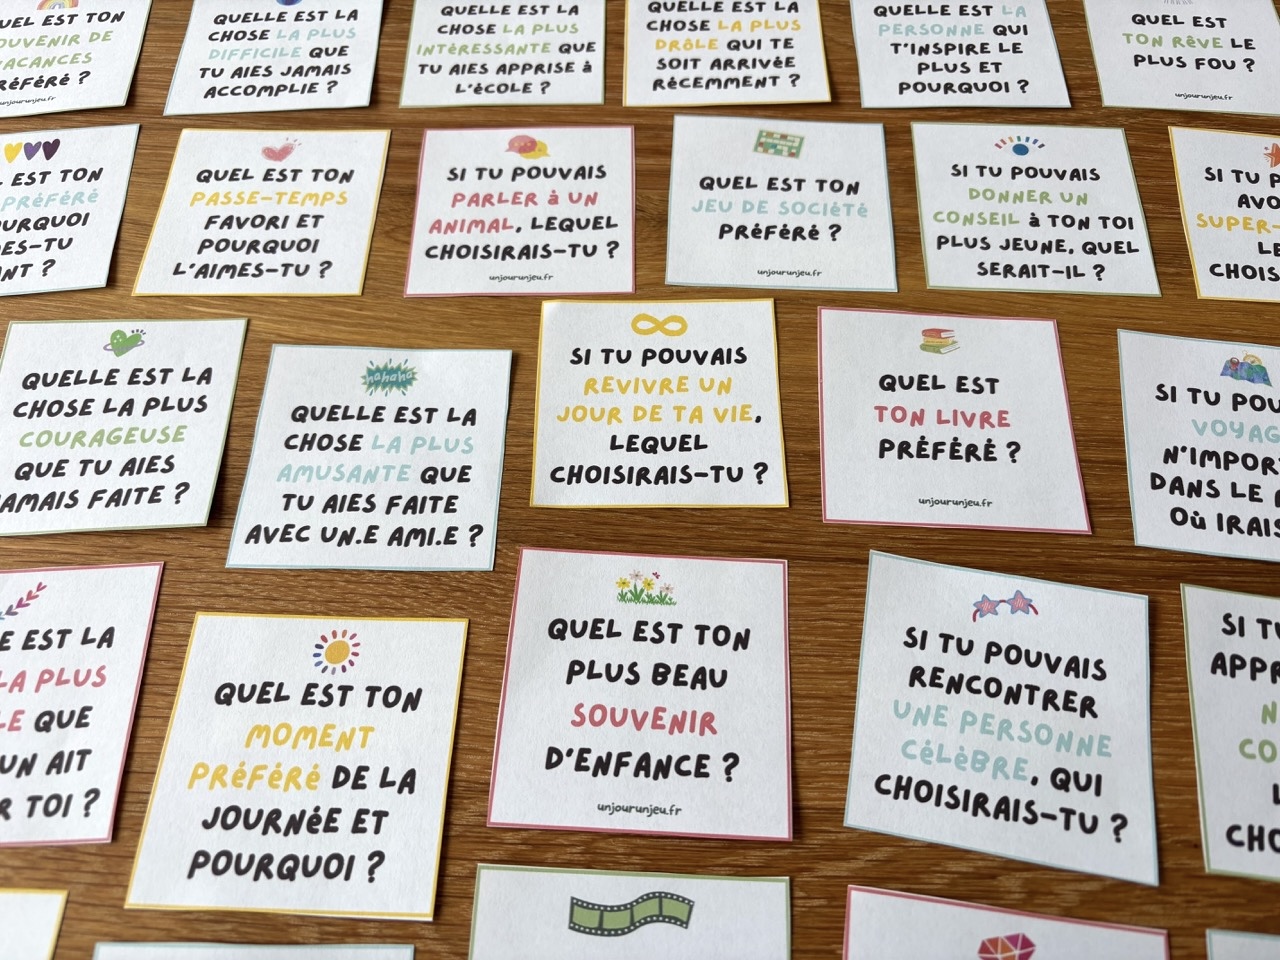 EST TON
OUVENIR DE
ACANCES
RÉFÉRÉ ?
unjourunjeu.fr
QUELLE EST LA
CHOSE LA PLUS
DIFFICILE QUE
TU AIES JAMAIS
ACCOMPLIE ?
QUELLE EST LA
CHOSE LA PLUS
INTÉRESSANTE QUE
TU AIES APPRISE à
L'ÉCOLE ?
QUELLE EST LA
CHOSE LA PLUS
DRÔLE QUI TE
SOIT ARRIVÉE
RÉCEMMENT ?
QUELLE EST LA
PERSONNE QUI
T'INSPIRE LE
PLUS ET
POURQUOI ?
QUEL EST
TON RÊVE LE
PLUS FOU ?
unjourunjeu.fr
EST TON
PRÉFÉRÉ
OURQUOI
ES-TU
NT ?
QUEL EST TON
PASSE-TEMPS
FAVORI ET
POURQUOI
L'AIMES-TU ?
SI TU POUVAIS
PARLER à UN
ANIMAL, LEQUEL
CHOISIRAIS-TU ?
unjourunjeu.fr
QUEL EST TON
JEU DE SOCIÉTÉ
PRÉFÉRÉ ?
unjourunjeu.fr
SI TU POUVAIS
DONNER UN
CONSEIL à TON TOI
PLUS JEUNE, QUEL
SERAIT-IL ?
SI TU P
AVO
SUPER-
LE
CHOIS
QUELLE EST LA
CHOSE LA PLUS
COURAGEUSE
QUE TU AIES
JAMAIS FAITE ?
hahaha
QUELLE EST LA
CHOSE LA PLUS
AMUSANTE QUE
TU AIES FAITE
AVEC UN.E AMI.E ?
SI TU POUVAIS
REVIVRE UN
JOUR DE TA VIE,
LEQUEL
CHOISIRAIS-TU ?
QUEL EST
TON LIVRE
PRÉFÉRÉ ?
unjourunjeu.fr
SI TU POU
VOYAG
N'IMPOR
DANS LE
Où IRAIS
E EST LA
LA PLUS
LE QUE
UN AIT
R TOI ?
QUEL EST TON
MOMENT
PRÉFÉRÉ DE LA
JOURNÉE ET
POURQUOI ?
QUEL EST TON
PLUS BEAU
SOUVENIR
D'ENFANCE ?
unjourunjeu.fr
SI TU POUVAIS
RENCONTRER
UNE PERSONNE
CÉLÈBRE, QUI
CHOISIRAIS-TU ?
SI TU
APPR
N
CO
L
CHO